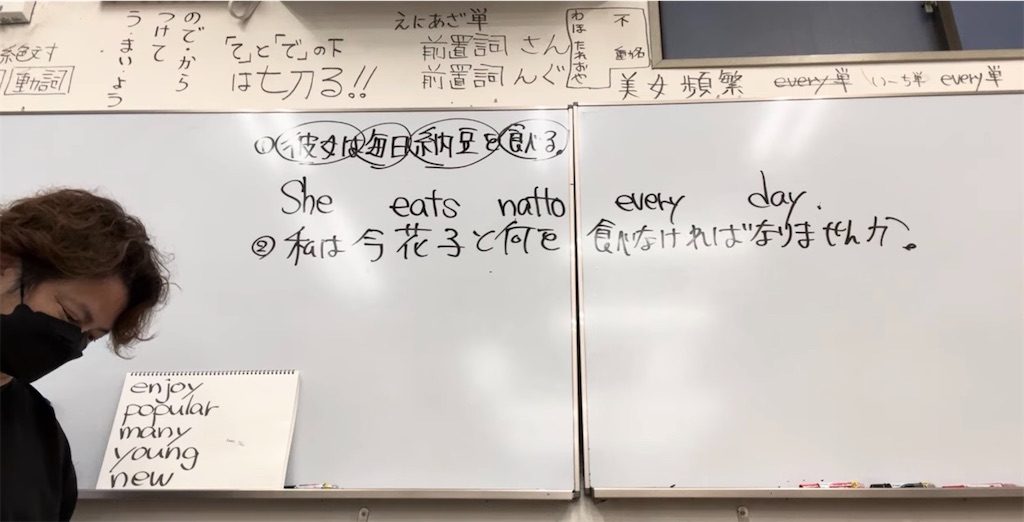 ので・から
つけて
う・まい・よう
絶対
動詞
「て」と「で」の下
は切る!!
えにあざ単
前置詞 さん
前置詞 んぐ
わは たれおや
不
動名
美女頻繁 every単 いーち単 every単
① 彼女は毎日納豆を食べる。
She eats natto every day.
② 私は今花子と何を食べなければなりませんか。
enjoy
popular
many
young
new